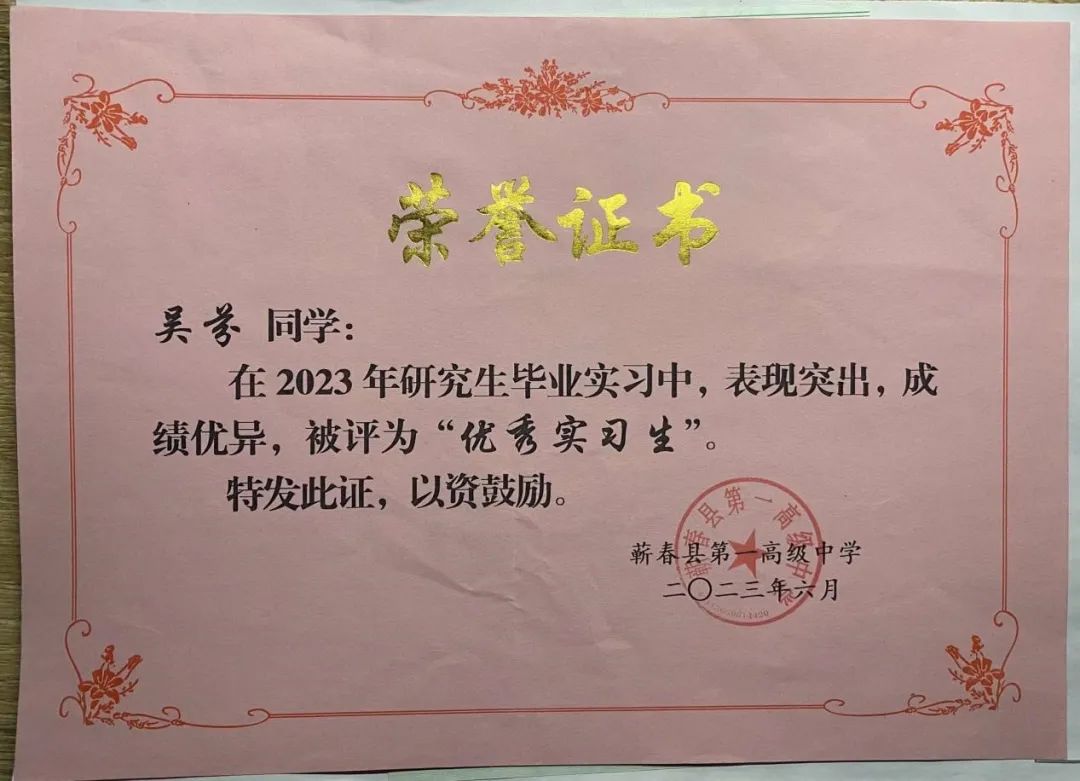 荣誉证书
吴芬 同学：
在 2023 年研究生毕业实习中，表现突出，成
绩优异，被评为“优秀实习生”。
特发此证，以资鼓励。
蕲春县第一高级中学
蕲春县第一高级中学
二〇二三年六月